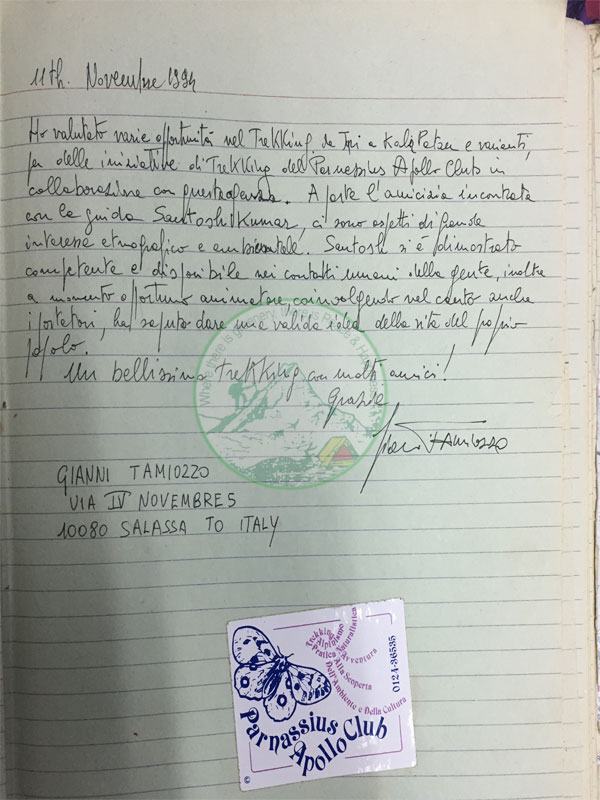 11th. Novembre 1994
Ho valutato varie opportunità nel Trekking da Jiri a Kala Patzer e varianti,
per delle iniziative di Trekking del Parnassius Apollo Club in
collaborazione con quest'agenzia. A parte l'amicizia incontrata
con la guida Santosh Kumar, ci sono aspetti di grande
interesse etnografico e ambientale. Santosh si é dimostrato
competente e disponibile nei contatti umani della gente, inoltre
a momento opportuno animatore, coinvolgendo nel canto anche
i portatori, ha saputo dare una valida idea della vita del proprio
popolo.
Un bellissimo trekking con molti amici!
Grazie
Gianni Tamiozzo
GIANNI TAMIOZZO
VIA IV NOVEMBRE 5
10080 SALASSA TO ITALY
Trekking
Alpinismo
Pratica Naturalistica
Avventura
Alla Scoperta
Dell'Ambiente e Della Cultura
0124-36535
Parnassius
Apollo Club
©